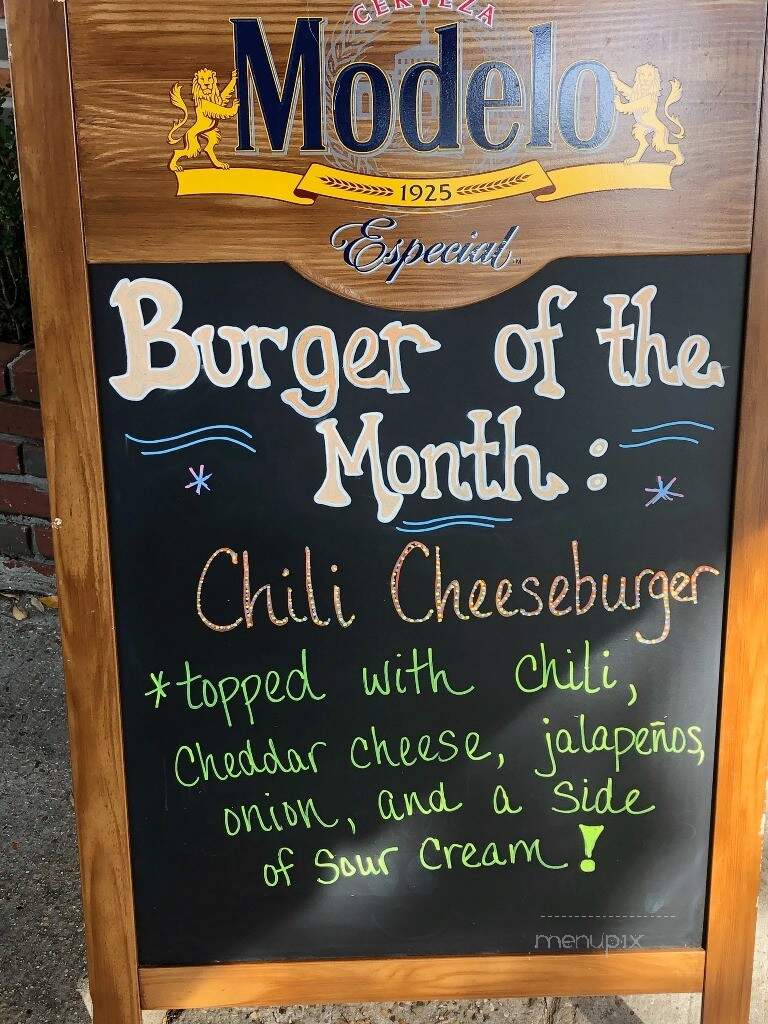 CERVEZA
Modelo
1925
Especial
Burger of the
Month:
Chili Cheeseburger
*topped with chili,
Cheddar cheese, jalapeños,
onion, and a side
of Sour Cream!
menupix